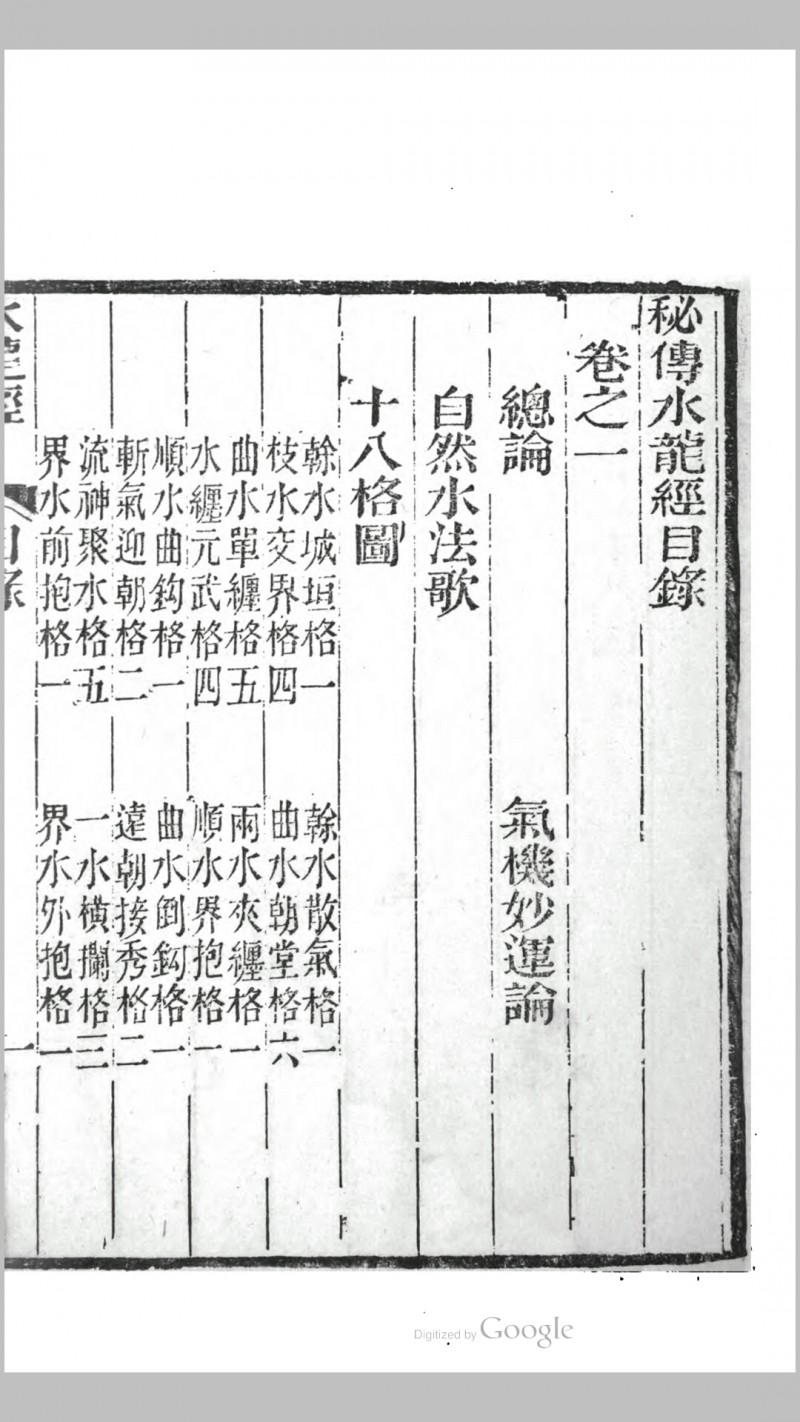 秘傳水龍經目錄
卷之一
總論
氣機妙運論
自然水法歌
十八格圖
榦水城垣格一
榦水散氣格一
枝水交界格四
曲水朝堂格六
曲水單纏格五
兩水夾纏格一
水纏元武格四
順水界抱格一
順水曲鈎格一
曲水倒鈎格一
斬氣迎朝格二
遠朝接秀格二
流神聚水格五
一水橫攔格三
界水前抱格一
界水外抱格一
水龍經
目錄
一
Digitized by Google